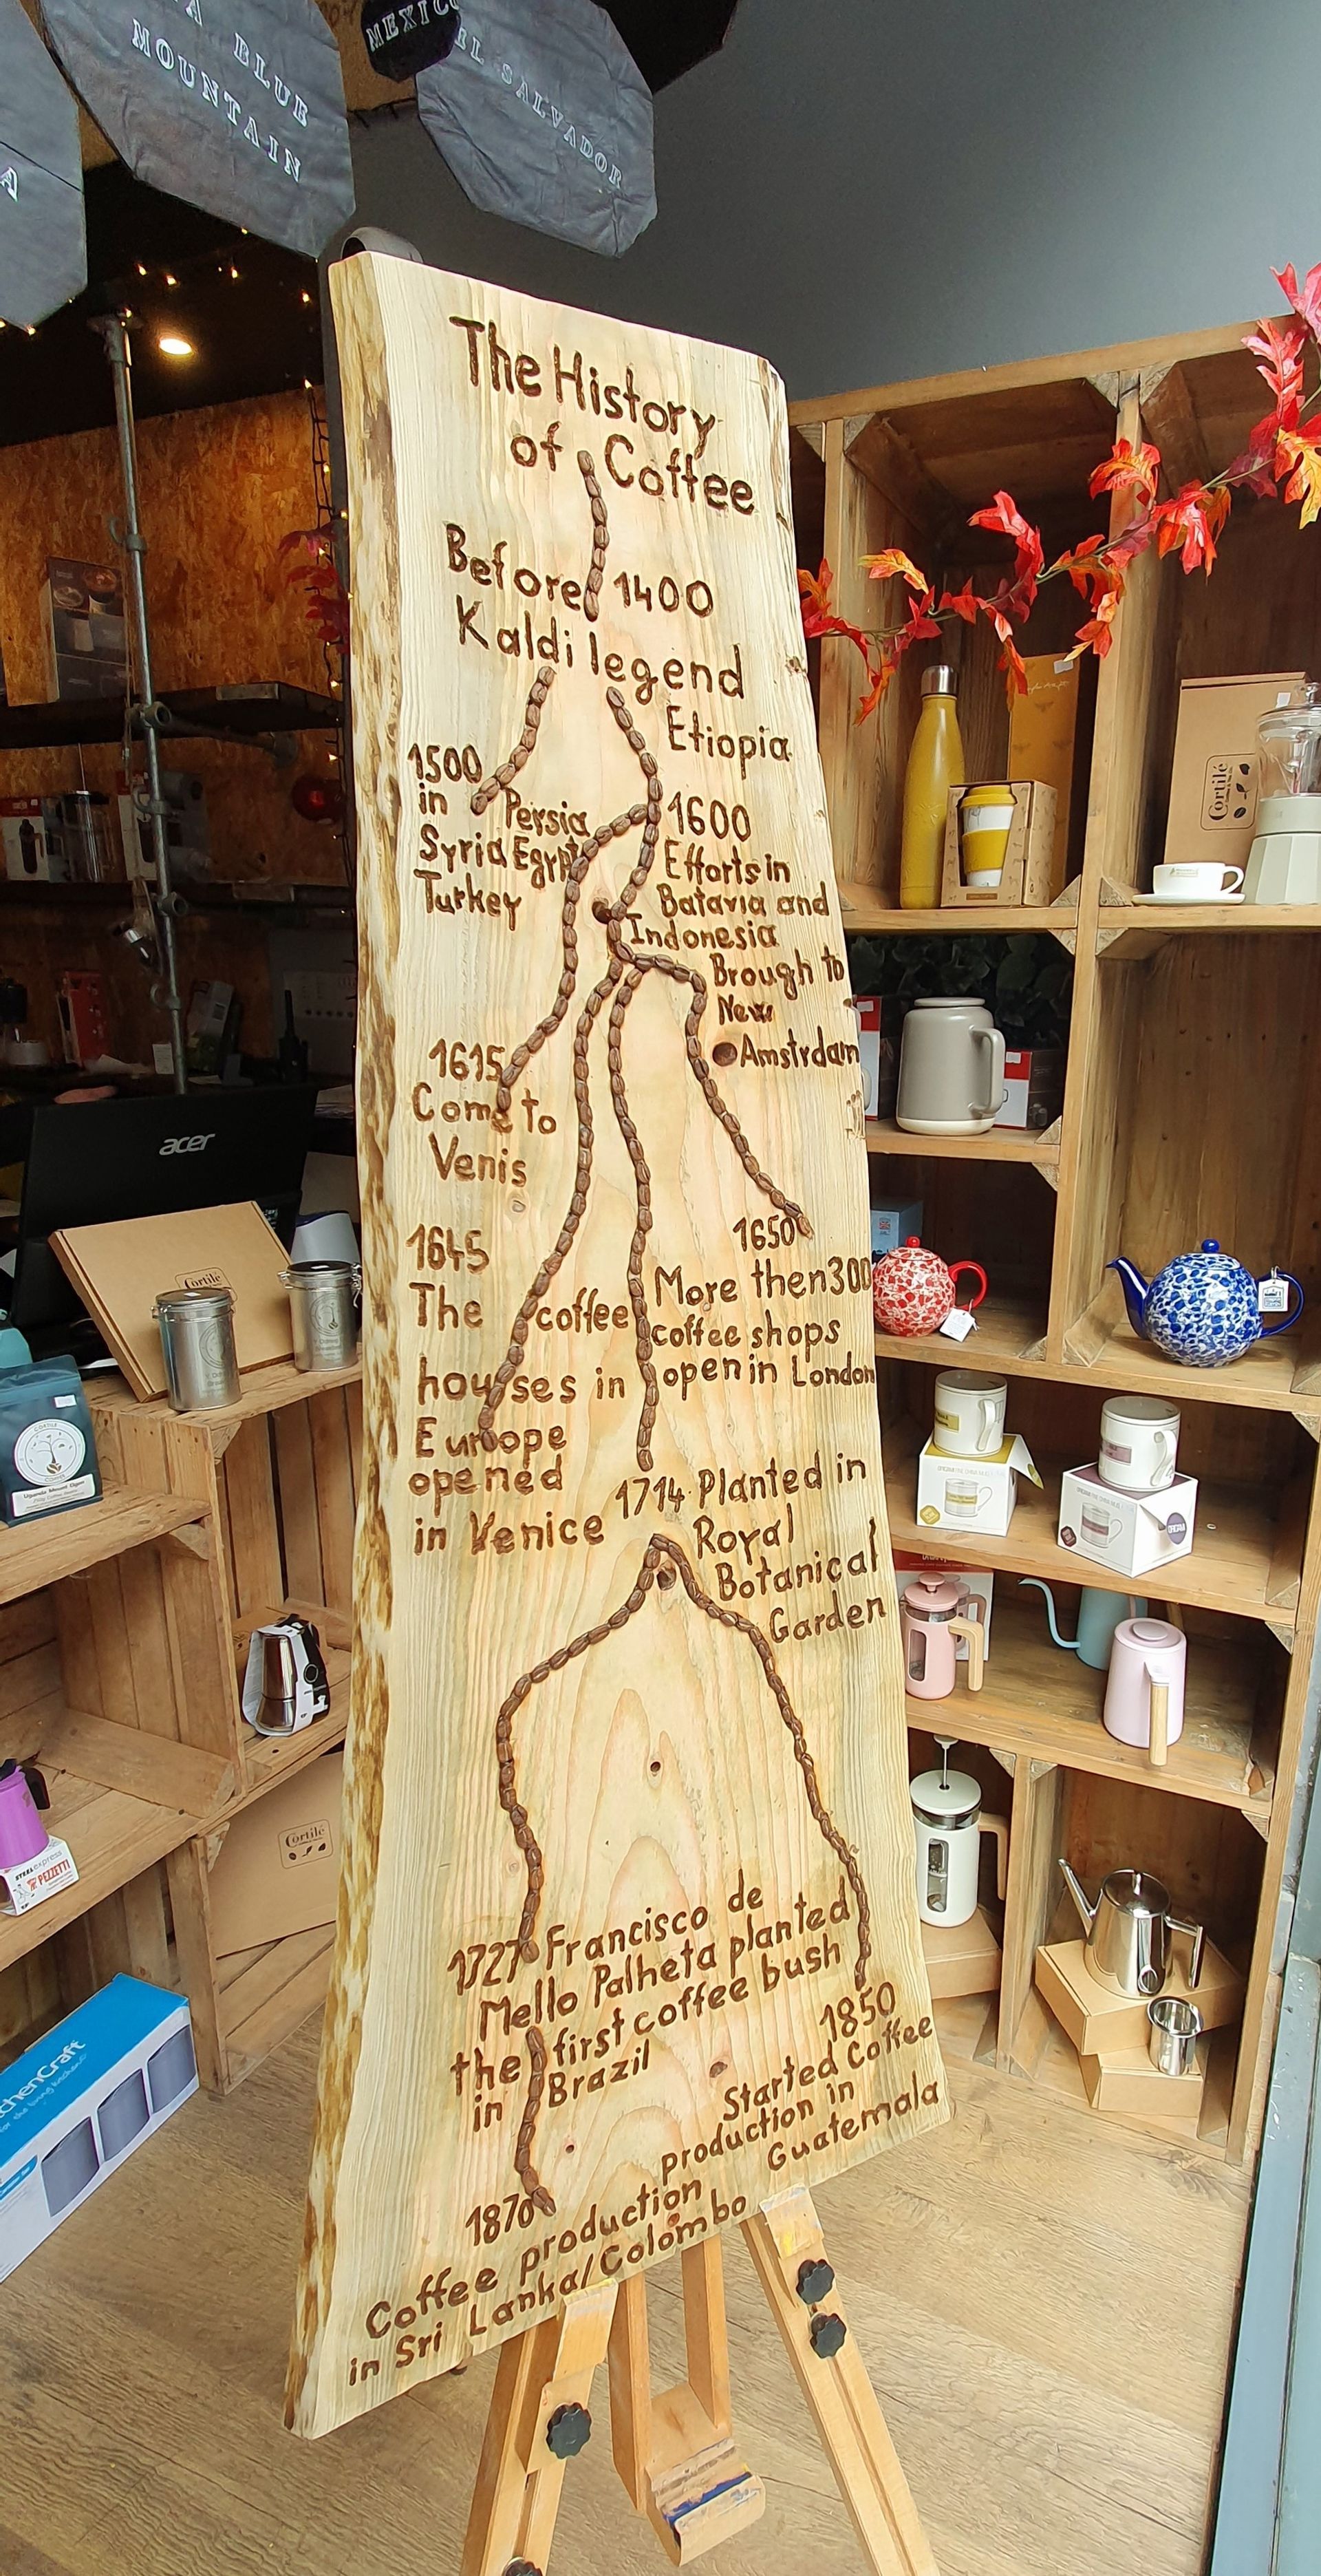 BLUE
MOUNTAIN
MEXICO
EL SALVADOR
The History
of Coffee
Before 1400
Kaldi legend
Etiopia
1500
in
Syria
Turkey
Persia
Egypt
1600
Efforts in
Batavia and
Indonesia
Brough to
New
Amstrdam
1615
Come to
Venis
1645
The coffee
houses in
Europe
opened
in Venice
1650
More then 300
coffee shops
open in London
1714 Planted in
Royal
Botanical
Garden
1727 Francisco de
Mello Palheta planted
the first coffee bush
in Brazil
1850
Started Coffee
production in
Guatemala
1870
Coffee production
in Sri Lanka/Colombo
acer
Cortilé
Cortilé
Cortilé
CORTILE
Uganda Mount Elgon
PEZZETTI